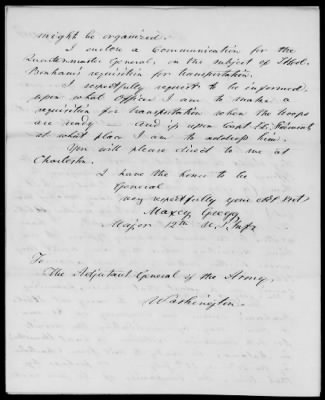 might be organized.
I enclose a Communication for the
Quartermaster General, on the subject of
Bonham's requisition for transportation.
I respectfully request to be informed
upon what officer I am to make a
requisition for transportation when the troops
are ready — and if upon Capt
at what place I am to address him.
You will please direct to me at
Charleston.
I have the honor to be
General
very respectfully your obt Svt
Maxcy Gregg
Major 12th U.S. Inf
To
The Adjutant General of the Army,
Washington.